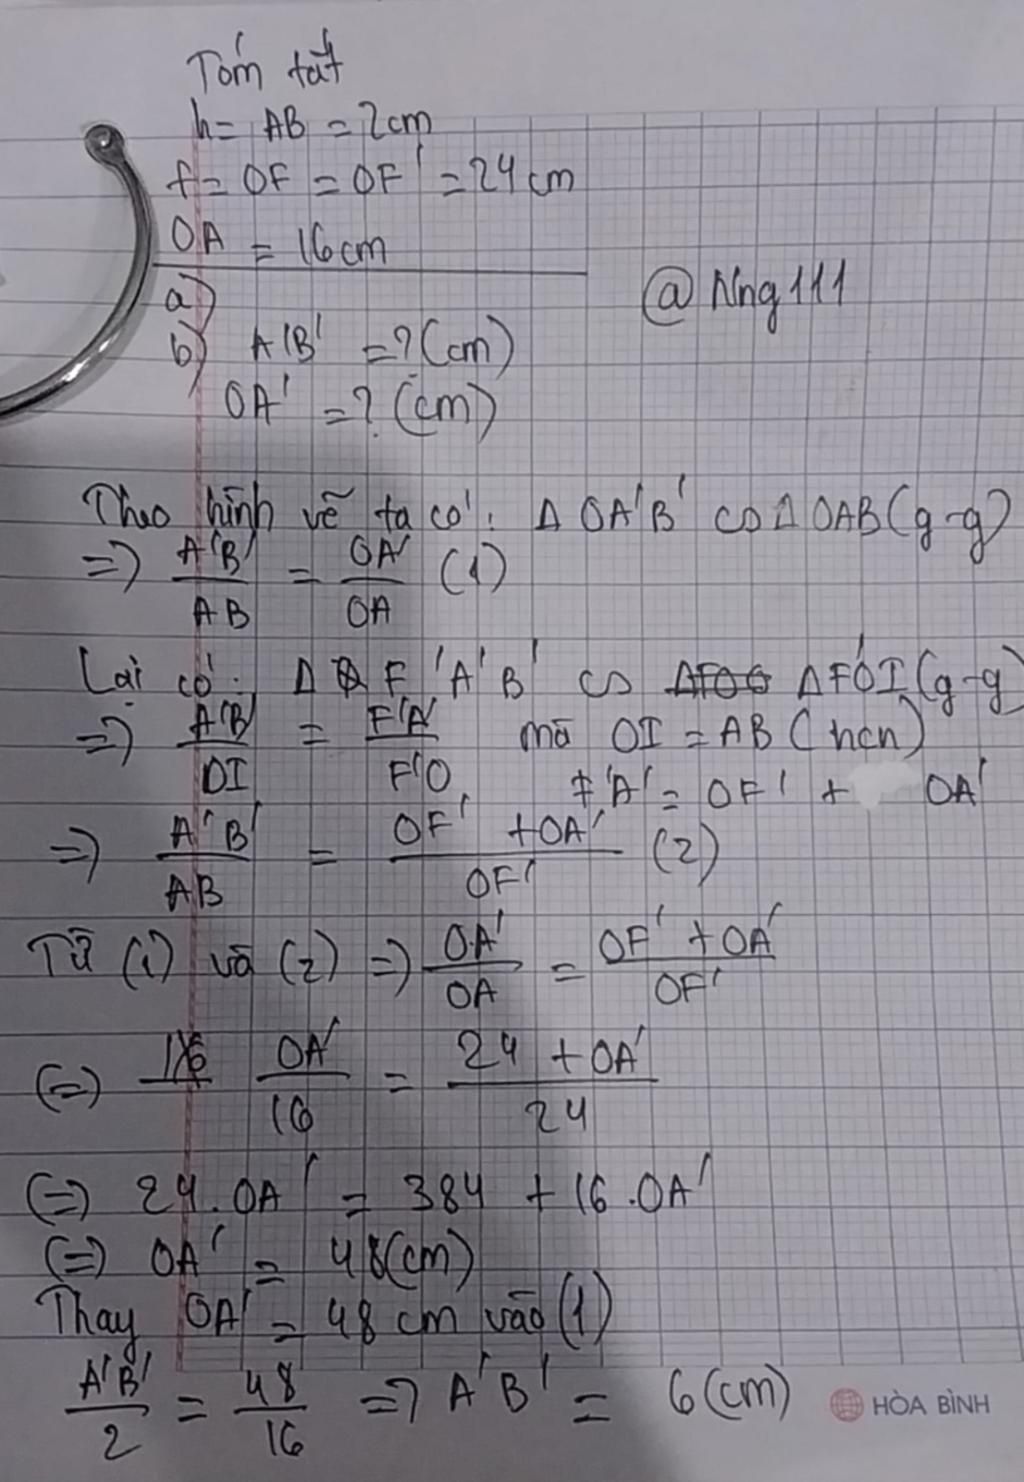 Tóm tắt
h = AB = 2cm
f = OF = OF' = 24cm
OA = 16cm
a)
@Nng111
b) A'B' = ? (cm)
OA' = ? (cm)
Theo hình vẽ ta có: Δ OA'B' ∽ Δ OAB (g-g)
=> A'B'/AB = OA'/OA (1)
Lại có: Δ F'A'B' ∽ ΔF'OI (g-g)
=> A'B'/OI = F'A'/F'O mà OI = AB (hcn)
F'A' = OF' + OA'
=> A'B'/AB = (OF' + OA')/OF' (2)
Từ (1) và (2) => OA'/OA = (OF' + OA')/OF'
(=) OA'/16 = (24 + OA')/24
(=) 24.OA' = 384 + 16.OA'
(=) OA' = 48(cm)
Thay OA' = 48 cm vào (1)
A'B'/2 = 48/16 => A'B' = 6(cm)
HÒA BÌNH